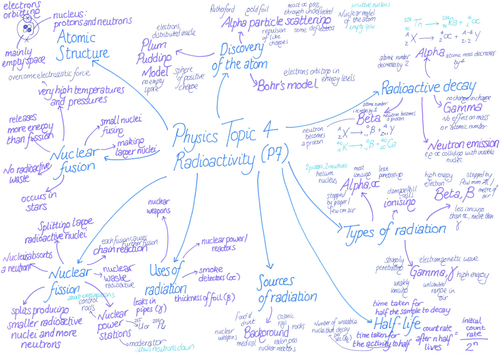 Physics Topic 4
Radioactivity (P7)
Atomic
Structure
electrons
orbiting
nucleus:
protons and neutrons
mainly
empty space
Discovery
of the atom
Plum
Pudding
Model
electrons
distributed
sphere
of positive
charge
no empty
space
Rutherford
gold foil
Alpha particle scattering
most α pass
through undeflected
repulsion
of like
charges
some deflected
Nuclear model
of the atom
Bohr's model
electrons orbiting in
energy levels
Radioactive decay
Alpha
Beta
neutron becomes
a proton
neutron
becomes
a proton
Gamma
no change in charge
No effect on mass
or atomic number
Neutron emission
Types of radiation
Alpha, α
helium nucleus
most
ionising
least
stopped by
paper/
few cm air
ionising
Beta, β
high energy electron
stopped by
less ionising
than α, more than
γ
Gamma, γ
electromagnetic wave
high energy
weakly
ionising
unlimited
range in
air
Half-life
time taken for
half the sample to decay
time taken for
the activity to half
count rate
after n half
lives
=
initial
count
rate
2ⁿ
Sources
of radiation
Background
food &
drink
nuclear
weapons
cosmic
rays
rocks
radon gas
nuclear reactors
medical
Uses of
radiation
nuclear
weapons
nuclear power/
reactors
smoke
detectors (α)
thickness of foil (β)
leaks in
pipes (γ)
Nuclear
fission
Splitting large
radioactive nuclei
Nuclei absorbs
a neutron
chain reaction
nuclear
waste
radioactive
splits producing
smaller radioactive
nuclei and more
neutrons
control
rods
Nuclear
power
stations
moderator
slows neutrons down
Nuclear
fusion
overcome electrostatic force
very high temperatures
and pressures
releases
more energy
than fission
small nuclei
fusing
making
larger nuclei
No radioactive
waste
occurs in
stars